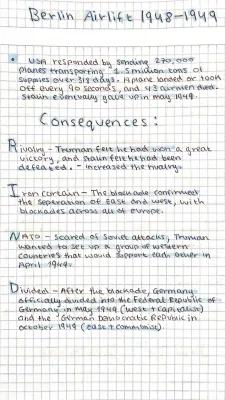 Berlin Airlift 1948-1949
• USA responded by sending 270,000
planes transporting 1.5 million tons of
supplies over 318 days. A plane landed or took
off every 90 seconds, and 43 airmen died.
Stalin eventually gave up in May 1949.
Consequences:
Rivalry - Truman felt he had won a great
victory, and Stalin felt he had been
defeated. - increased the rivalry.
Iron Curtain - The blockade confirmed
the separation of East and West, with
blockades across all of Europe.
NATO - Scared of Soviet attacks, Truman
wanted to set up a group of western
countries that would support each other in
April 1949.
Divided - After the blockade, Germany
officially divided into the Federal Republic of
Germany in May 1949 (West + capitalist)
and the German Democratic Republic in
October 1949 (east + communist).